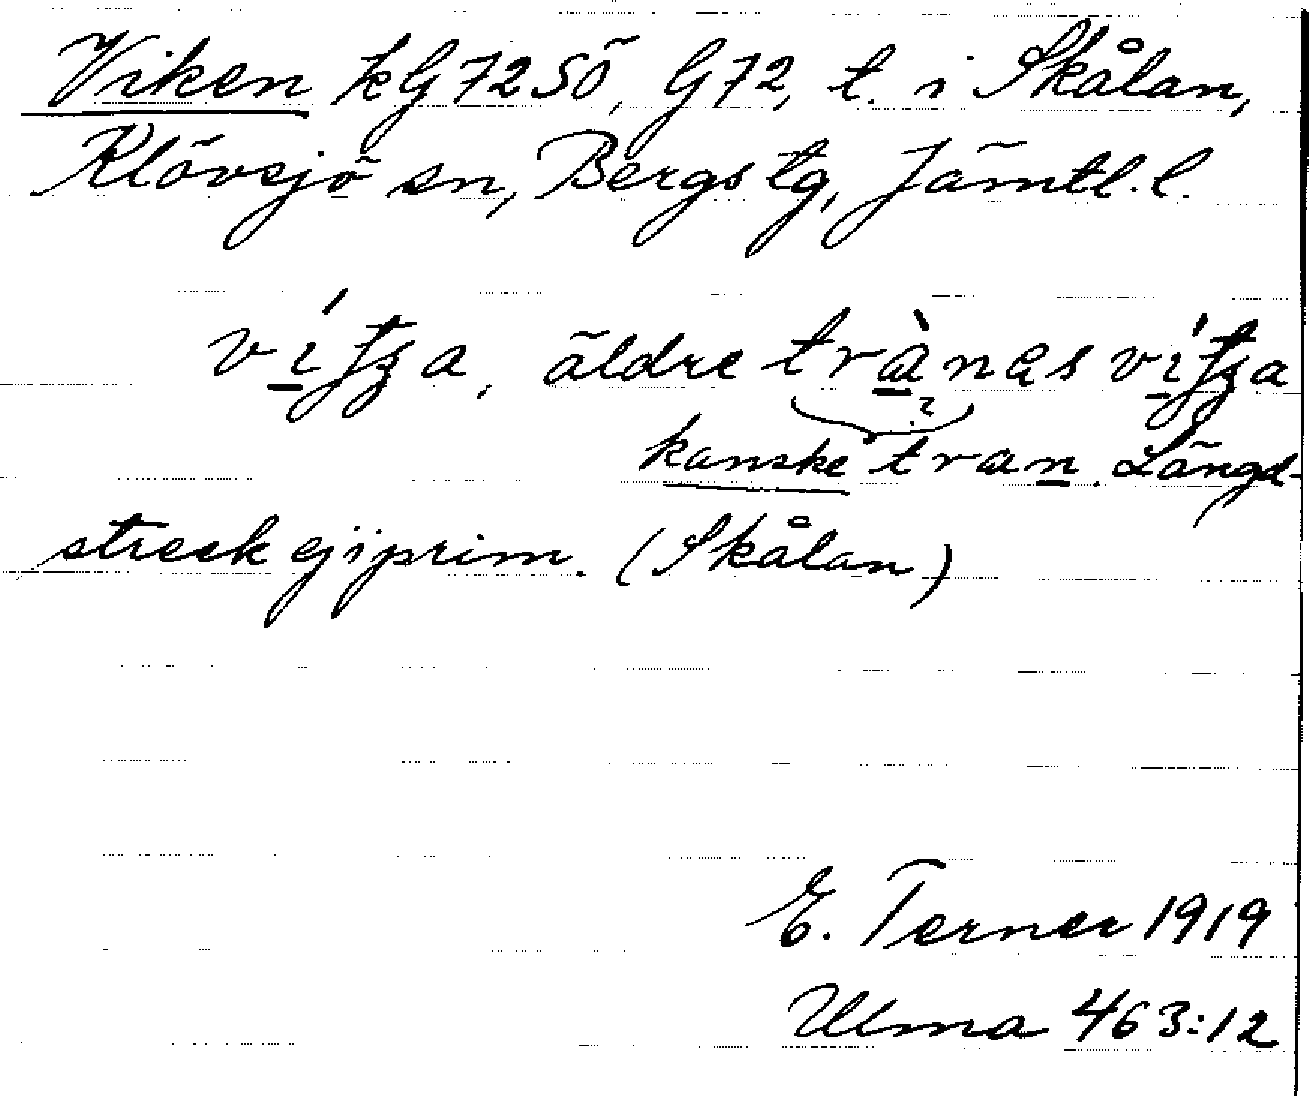 Viken kG72SÖ, G72, t. i Skålan,
Klövsjö sn, Bergs tg, Jämtl. l.
vítʒa, äldre trànas vítʒa
?
kanske tran. Längd-
streck ej i prim. (Skålan)
E. Terner 1919
Ulma 463:12